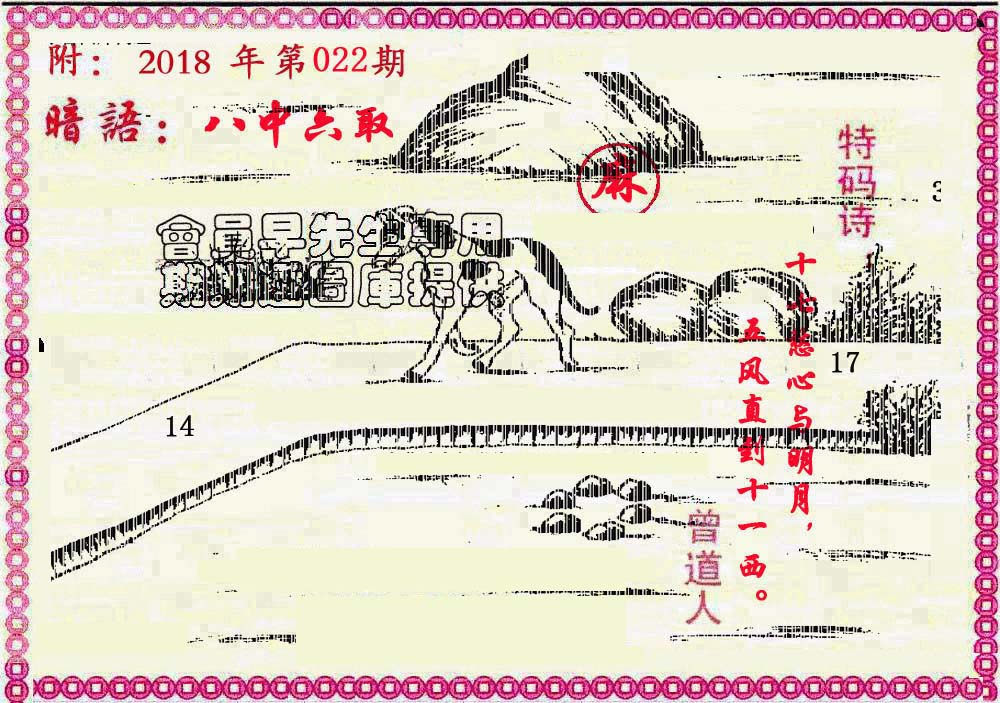 附： 2018 年第022期
暗語：八中六取
麻
特码诗：
3
會員早先生專用
期期邁圖庫提供
十心慈心与明月，
五风直到十一西。
17
14
曾道人